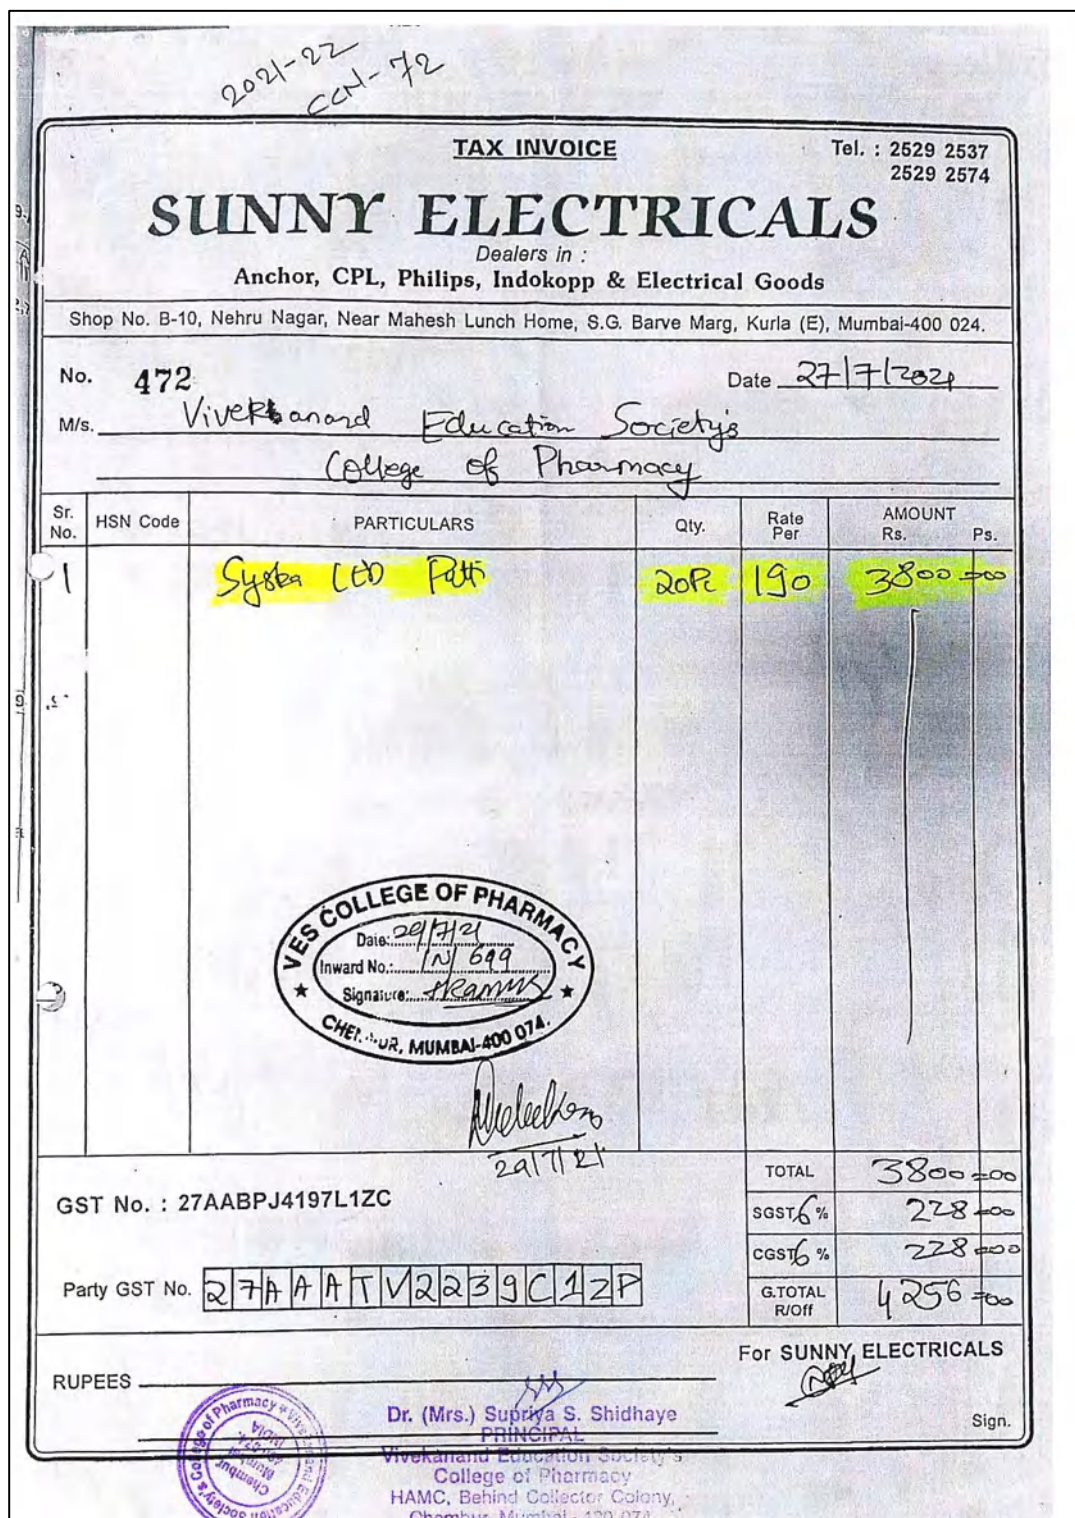 2021-22
CCN-72
TAX INVOICE
Tel. : 2529 2537
2529 2574
SUNNY ELECTRICALS
Dealers in :
Anchor, CPL, Philips, Indokopp & Electrical Goods
Shop No. B-10, Nehru Nagar, Near Mahesh Lunch Home, S.G. Barve Marg, Kurla (E), Mumbai-400 024.
No. 472 Date 27/7/2021
M/s. Vivekanand Education Society's
College of Pharmacy
Sr. No. HSN Code PARTICULARS Qty. Rate Per AMOUNT Rs. Ps.
1 Syska LED Patti 20Pc 190 3800=00
VES COLLEGE OF PHARMACY
Date: 29/7/21
Inward No.: IN/699
Signature:
MUMBAI-400 074.
29/7/21
TOTAL 3800=00
GST No. : 27AABPJ4197L1ZC
SGST 6 % 228=00
CGST 6 % 228=00
Party GST No. 27AAATV2239C1ZP
G.TOTAL R/Off 4256=00
For SUNNY ELECTRICALS
RUPEES
Sign.
Dr. (Mrs.) Supriya S. Shidhaye
PRINCIPAL
Vivekanand Education Society's
College of Pharmacy
HAMC, Behind Collector Colony,
Chembur, Mumbai - 400 074